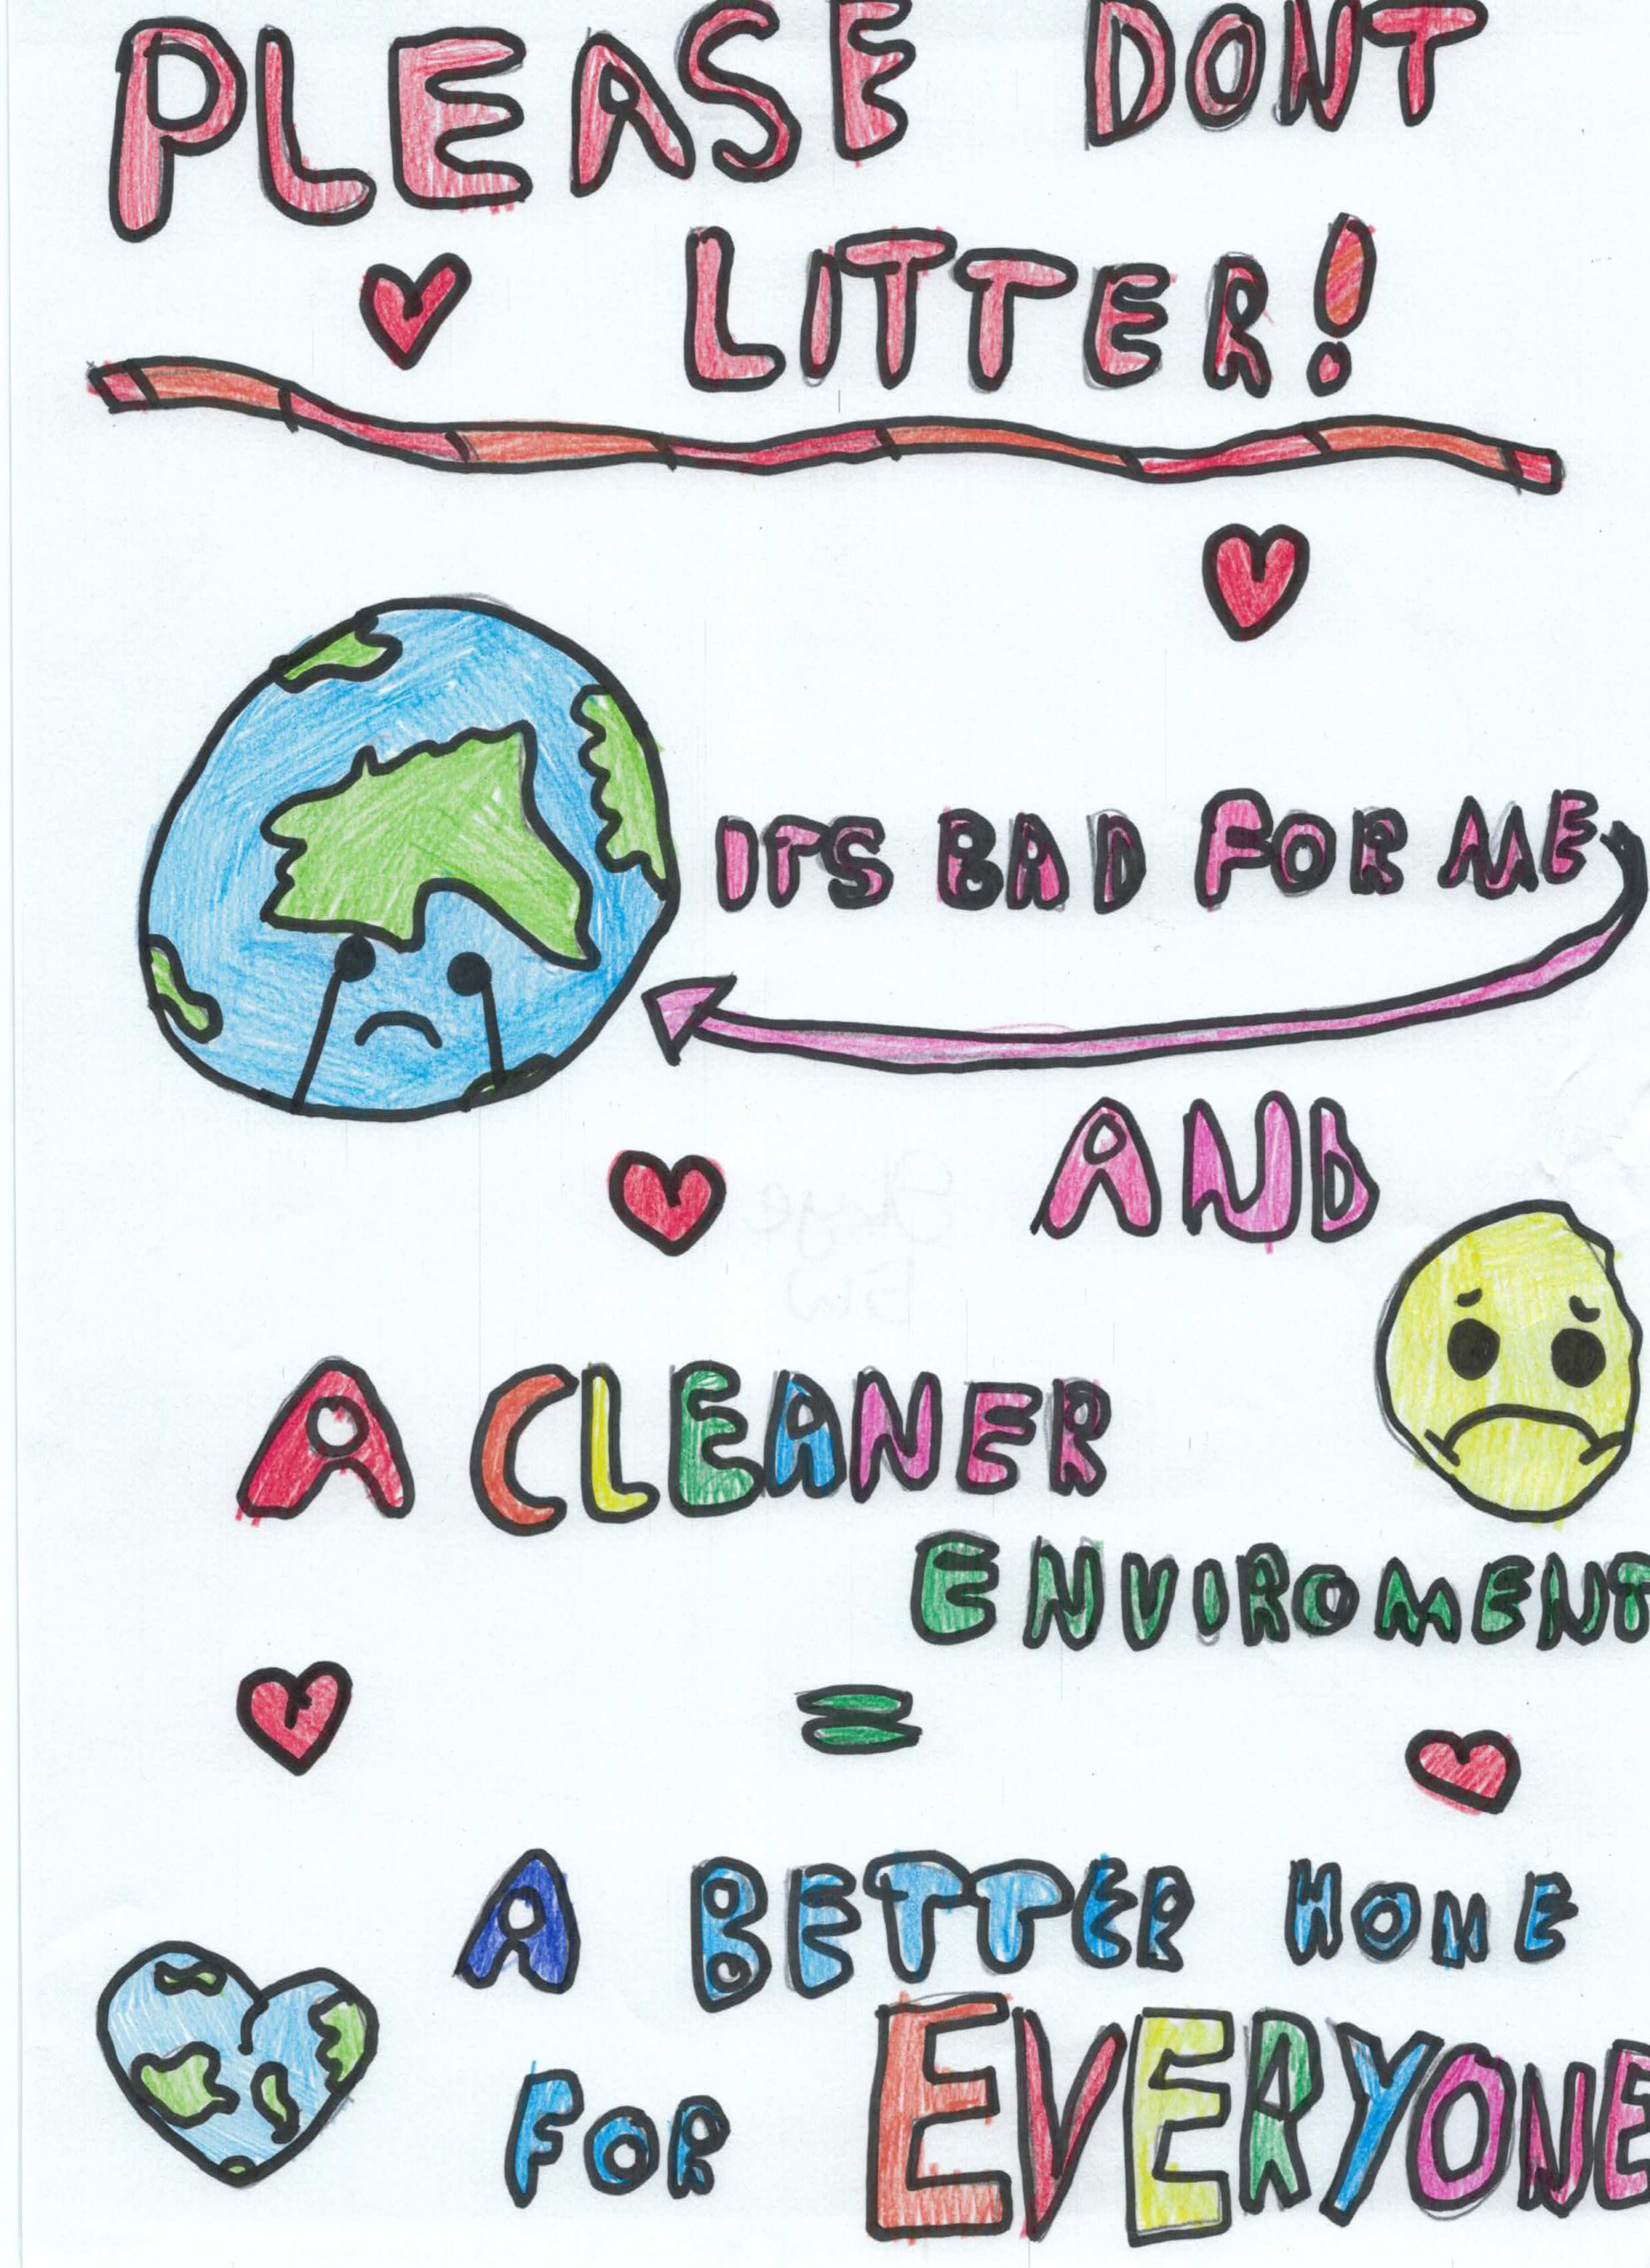 PLEASE DONT
LITTER!
ITS BAD FOR ME
AND
A CLEANER
ENVIROMENT
=
A BETTER HOME
FOR EVERYONE